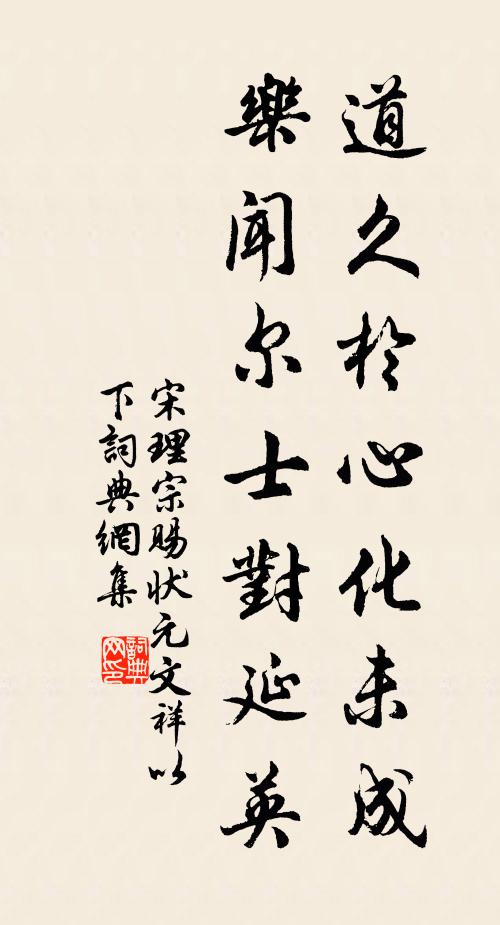 道久於心化未成
樂聞尔士對延英
宋理宗賜狀元文祥以
下詞典網集
詞典网印